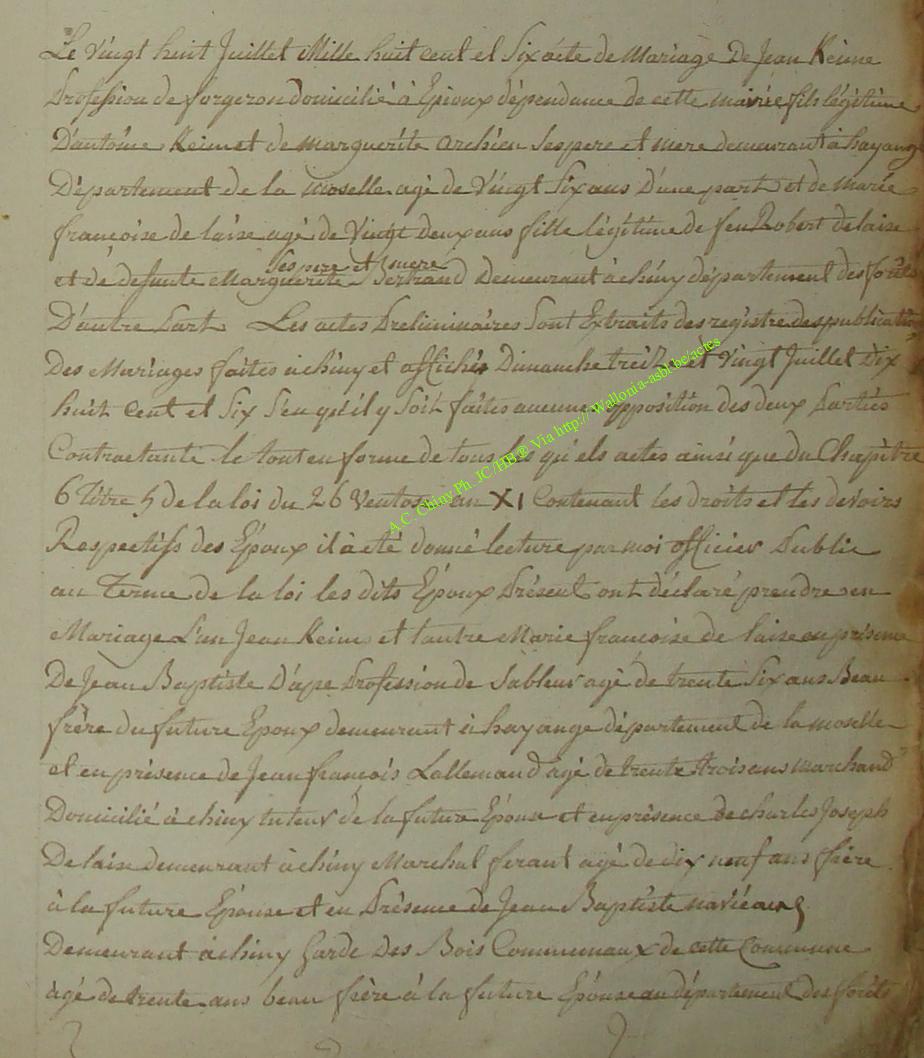 Le vingt huit Juillet Mille huit cent et Six acte de Mariage De Jean Keime
Profession de forgeron domicilié à Epioux dépendance de cette mairie fils légitime
D'antoine Keim et de marguerite archien Ses pere et mere demeurant à hayange
Département de la Moselle agé de Vingt Six ans D'une part et de marie
françoise de laise agé de Vingt deux ans fille légitime de feu Robert de laise
Ses pere et mere
et de defunte Marguerite Bertrand Demeurant à chiny département des forêts
D'autre Part Les actes Preliminaires Sont Extraits des registre des publication
Des Mariages faites à chiny et affichés Dimanche treize et Vingt Juillet Dix
huit Cent et Six S'en qu'il y Soit faites aucunes opposition des deux Parties
Contractante le tout en forme de tous les qu'els actes ainsi que du Chapitre
6 Titre 5 de la loi du 26 Ventose an XI Contenant les droits et les devoirs
Respectifs des Epoux il à été donné lecture par moi officier Public
au Terme de la loi les dits Epoux Présent ont déclaré prendre en
Mariage L'un Jean Keim et l'autre Marie françoise de laise en présence
De Jean Baptiste D'ape Profession de Sableur agé de trente Six ans Beau
frère du future Epoux demeurant à hayange département de la moselle
et en présence de Jean françois Lallemand agé de trente trois ans marchand
Domicilié à chiny tuteur de la future Epouse et en présence de charles Joseph
De laise demeurant à chiny Marchal ferant agé de dix neuf ans frère
à la future Epouse et en Présence de Jean Baptiste
Demeurant à chiny Garde Des Bois Communaux de cette Commune
âgé de trente ans beau frère à la future Epouse au département des forêts
A.C. Chiny Ph. JC/HB ® Via http://Wallonia-asbl.be/actes